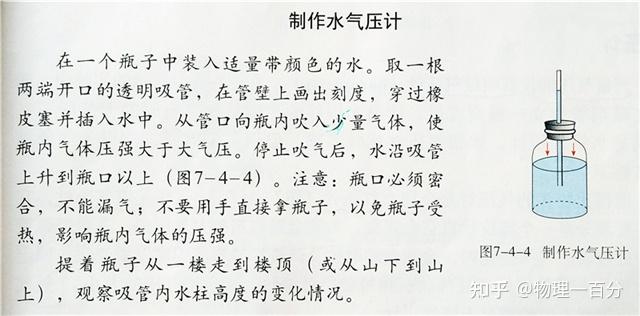 制作水气压计
在一个瓶子中装入适量带颜色的水。取一根
两端开口的透明吸管，在管壁上画出刻度，穿过橡
皮塞并插入水中。从管口向瓶内吹入少量气体，使
瓶内气体压强大于大气压。停止吹气后，水沿吸管
上升到瓶口以上（图7-4-4）。注意：瓶口必须密
合，不能漏气；不要用手直接拿瓶子，以免瓶子受
热，影响瓶内气体的压强。
提着瓶子从一楼走到楼顶（或从山下到山
上），观察吸管内水柱高度的变化情况。
图7-4-4 制作水气压计
知乎 @物理一百分